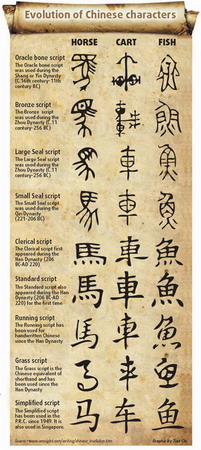 Evolution of Chinese characters
HORSE CART FISH
Oracle bone script
The Oracle bone script
was used during the
Shang or Yin Dynasty
(C.16th century-11th
century BC)
Bronze script
The Bronze script
was used during the
Zhou Dynasty (C.11
century-256 BC)
Large Seal script
The Large Seal script
was used during the
Zhou Dynasty (C.11
century-256 BC)
Small Seal script
The Small Seal script
was used during the
Qin Dynasty
(221-206 BC)
Clerical script
The Clerical script first
appeared during the
Han Dynasty (206
BC-AD 220)
馬 車 魚
Standard script
The Standard script also
appeared during the Han
Dynasty (206 BC-AD
220) for the first time
馬 車 魚
Running script
The Running script has
been used for
handwritten Chinese
since the Han Dynasty
馬 車 魚
Grass script
The Grass script is the
Chinese equivalent of
shorthand and has
been used since the
Han Dynasty
Simplified script
The Simplified script
has been used in the
P.R.C. since 1949. It is
also used in Singapore.
马 车 鱼